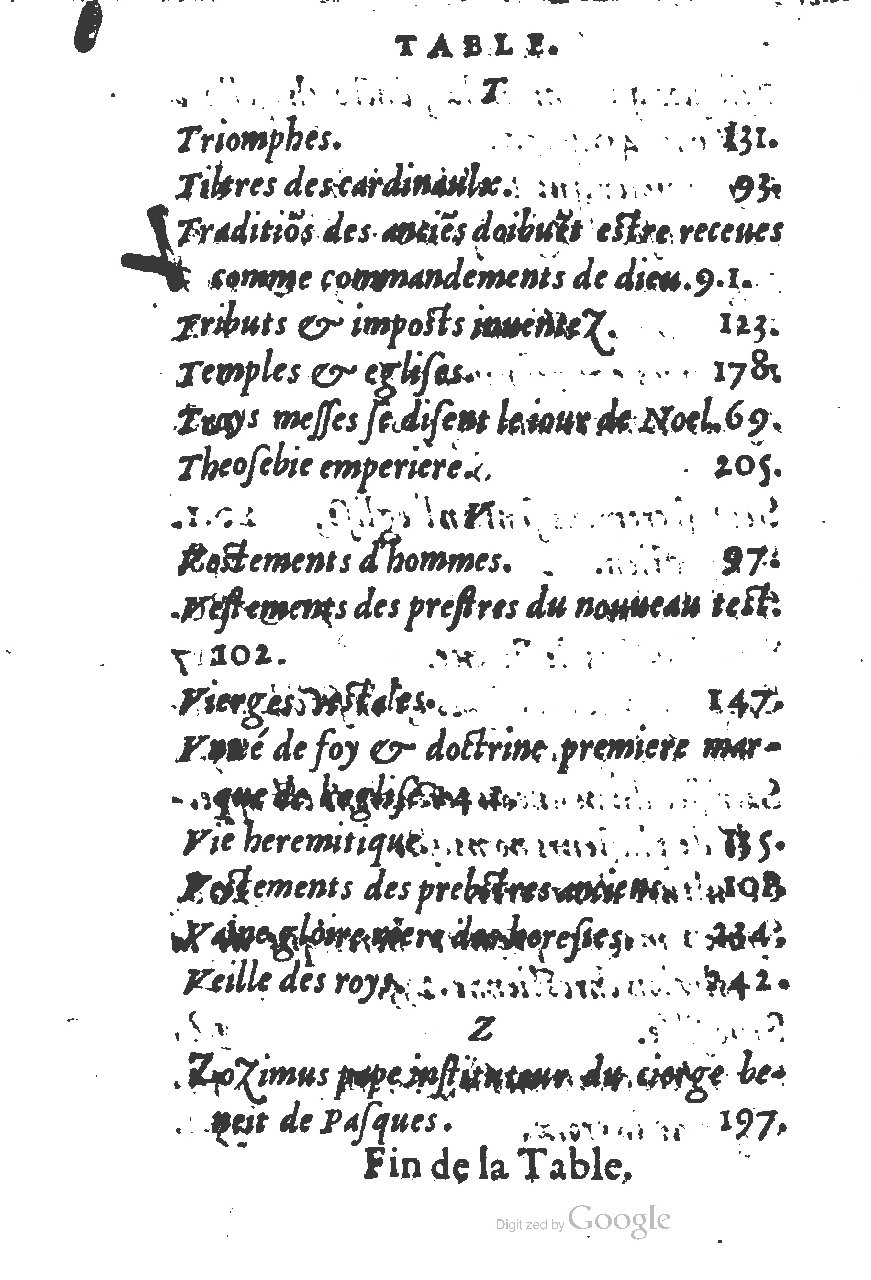 TABLE.
T
Triomphes. 131.
Tiltres des cardinaulx. 93.
Traditiōs des anciēs doibuēt estre receues
comme commandements de dieu. 9.1.
Tributs & imposts inuentez. 123.
Temples & eglises. 178.
Troys messes se disent le iour de Noel. 69.
Theosebie emperiere. 205.
V
Vestements d'hommes. 97.
Vestements des prestres du nouueau test.
102.
Vierges vestales. 147.
Vnité de foy & doctrine premiere mar-
que de l'eglise
Vie heremitique. 135.
Vestements des prebstres anciens.
Vaine gloire mere des heresies. 234.
Veille des roys. 242.
Z
Zozimus pape instituteur du cierge be-
neit de Pasques. 197.
Fin de la Table.
Digitized by Google